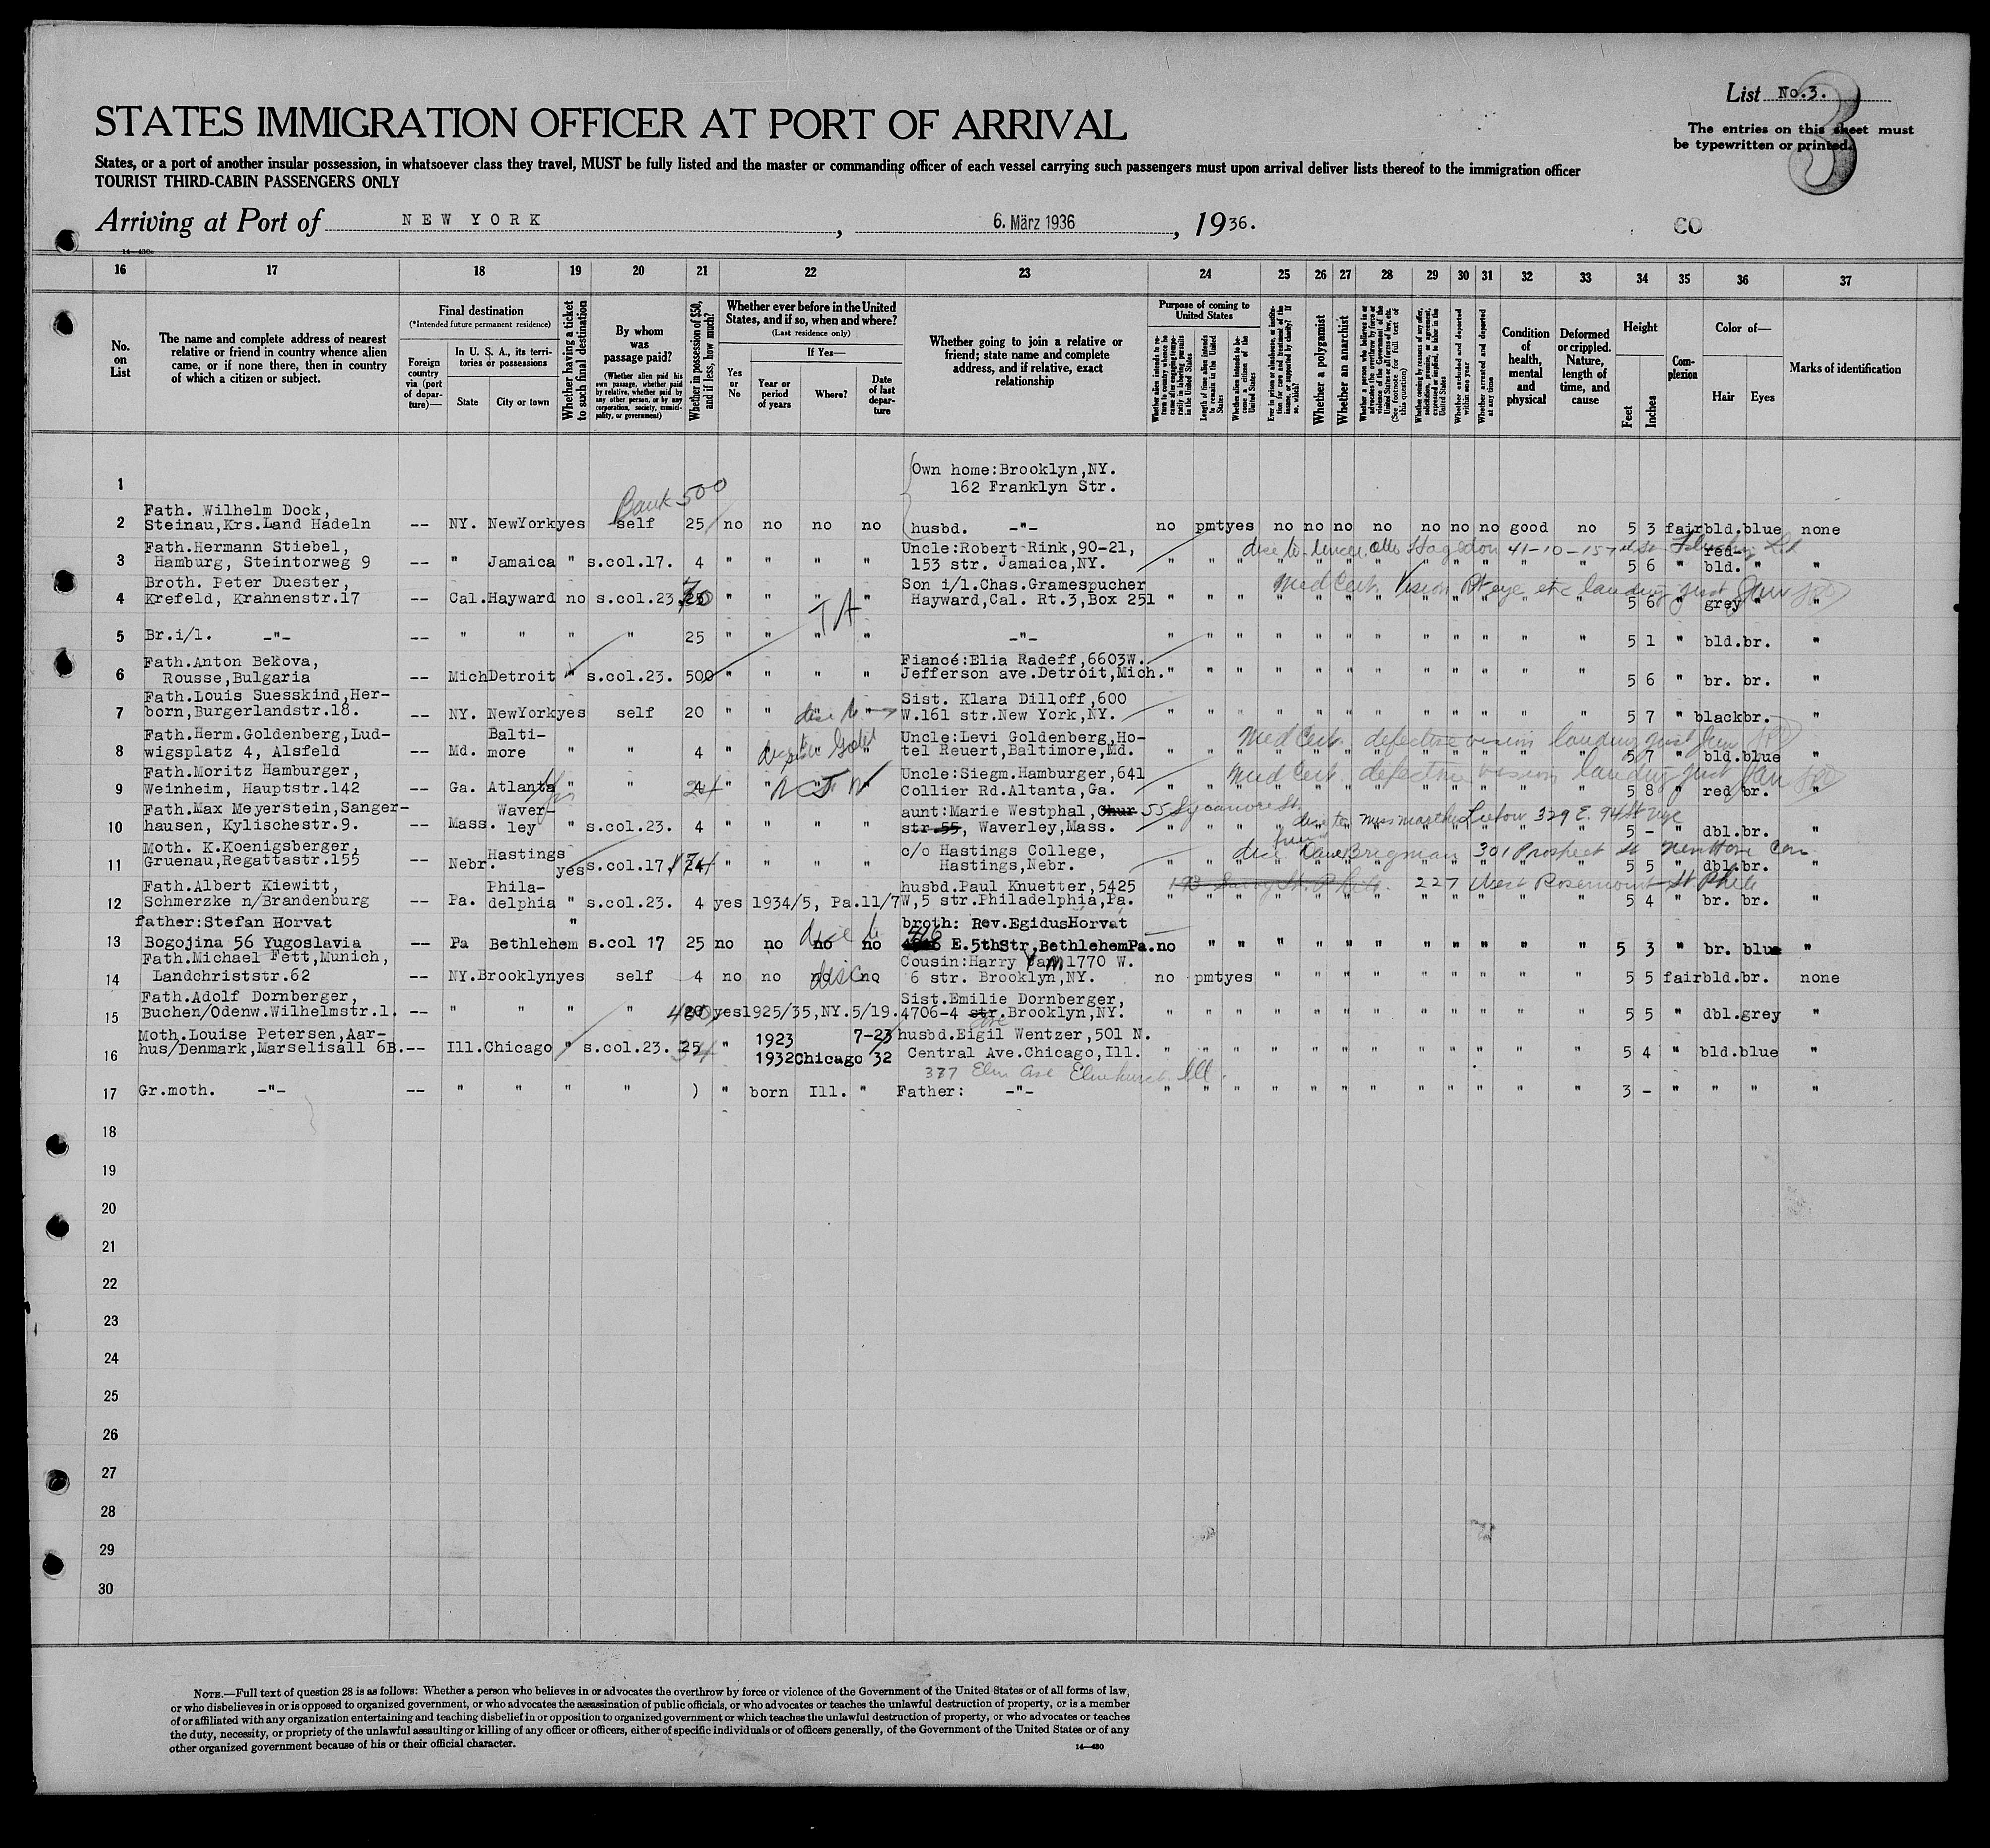 List No.3.
3
STATES IMMIGRATION OFFICER AT PORT OF ARRIVAL
The entries on this sheet must
be typewritten or printed.
States, or a port of another insular possession, in whatsoever class they travel, MUST be fully listed and the master or commanding officer of each vessel carrying such passengers must upon arrival deliver lists thereof to the immigration officer
TOURIST THIRD-CABIN PASSENGERS ONLY
Arriving at Port of NEW YORK, 6. März 1936, 1936.
CO
16 17 18 19 20 21 22 23 24 25 26 27 28 29 30 31 32 33 34 35 36 37
No. on List
The name and complete address of nearest relative or friend in country whence alien came, or if none there, then in country of which a citizen or subject.
Final destination
(*Intended future permanent residence)
Foreign country via (port of departure)—
In U. S. A., its territories or possessions
State
City or town
Whether having a ticket to such final destination
By whom was passage paid?
(Whether alien paid his own passage, whether paid by relative, whether paid by any other person, or by any corporation, society, municipality, or government)
Whether in possession of $50, and if less, how much?
Whether ever before in the United States, and if so, when and where?
(Last residence only)
Yes or No
If Yes—
Year or period of years
Where?
Date of last departure
Whether going to join a relative or friend; state name and complete address, and if relative, exact relationship
Purpose of coming to United States
Length of time alien intends to remain in the United States
Whether alien intends to become a citizen of the United States
Whether a polygamist
Whether an anarchist
(See footnote for full text of this question)
Whether excluded and deported within one year
Whether arrested and deported at any time
Condition of health, mental and physical
Deformed or crippled. Nature, length of time, and cause
Height
Feet
Inches
Complexion
Color of—
Hair
Eyes
Marks of identification
1 Own home:Brooklyn,NY.
162 Franklyn Str.
Bank 500
Fath. Wilhelm Dock,
2 Steinau,Krs.Land Hadeln -- NY. NewYork yes self 25 no no no no husbd. -"- no pmt yes no no no no no no no good no 5 3 fair bld. blue none
Fath.Hermann Stiebel, Uncle:Robert Rink,90-21,
3 Hamburg, Steintorweg 9 -- " Jamaica " s.col.17. 4 " " " " 153 str. Jamaica,NY. " " " " " " " " " " " " 5 6 " red-bld. " "
Broth. Peter Duester, Son i/l.Chas.Gramespucher Med Cert. Vision Rt eye etc landing just
4 Krefeld, Krahnenstr.17 -- Cal. Hayward no s.col.23. " " " " Hayward,Cal. Rt.3,Box 251 " " " " " " " " " " " " 5 6 " grey " "
5 Br.i/l. -"- -- " " " " 25 " " " " -"- " " " " " " " " " " " " 5 1 " bld. br. "
Fath.Anton Bekova, Fiancé:Elia Radeff,6603W.
6 Rousse,Bulgaria -- Mich Detroit " s.col.23. 500 " " " " Jefferson ave.Detroit,Mich. " " " " " " " " " " " " 5 6 " br. br. "
Fath.Louis Suesskind,Her- Sist. Klara Dilloff,600
7 born,Burgerlandstr.18. -- NY. NewYork yes self 20 " " " " W.161 str.New York,NY. " " " " " " " " " " " " 5 7 " black br. "
Fath.Herm.Goldenberg,Lud- Balti- Uncle:Levi Goldenberg,Ho- Med Cert. defective vision landing just
8 wigsplatz 4, Alsfeld -- Md. more " " 4 " " " " tel Reuert,Baltimore,Md. " " " " " " " " " " " " 5 7 " bld. blue "
Fath.Moritz Hamburger, Uncle:Siegm.Hamburger,641 Med Cert. defective vision landing just
9 Weinheim, Hauptstr.142 -- Ga. Atlanta " " " " " " Collier Rd.Altanta,Ga. " " " " " " " " " " " " 5 8 " red br. "
Fath.Max Meyerstein,Sanger- Waver- aunt:Marie Westphal, 55 Sycamore St.
10 hausen, Kylischestr.9. -- Mass. ley " s.col.23. 4 " " " " str 55, Waverley,Mass. " " " " " " " " " " " " 5 - " dbl. br. "
329 E. 94 St
Moth. K.Koenigsberger, Hastings c/o Hastings College, Bregman 301 Prospect St
11 Gruenau,Regattastr.155 -- Nebr. yes s.col.17. " " " " Hastings,Nebr. " " " " " " " " " " " " 5 5 " dbl. br. "
Fath.Albert Kiewitt, Phila- husbd.Paul Knuetter,5425 227 West Rosemont St Phila
12 Schmerzke n/Brandenburg -- Pa. delphia " s.col.23. 4 yes 1934/5, Pa. 11/7 W,5 str.Philadelphia,Pa. " " " " " " " " " " " " 5 4 " br. br. "
father:Stefan Horvat " broth: Rev.EgidusHorvat
13 Bogojina 56 Yugoslavia -- Pa Bethlehem s.col 17 25 no no no no 416 E.5thStr,BethlehemPa. no " " " " " " " " " " " 5 3 " br. blue "
Fath.Michael Fett,Munich, Cousin:Harry 1770 W.
14 Landchriststr.62 -- NY. Brooklyn yes self 4 no no no no 6 str. Brooklyn,NY. no pmt yes " " " " " " " " " 5 5 fair bld. br. none
Fath.Adolf Dornberger, Sist.Emilie Dornberger,
15 Buchen/Odenw.Wilhelmstr.1. -- " " " " yes 1925/35,NY. 5/19. 4706-4 str. Brooklyn,NY. " " " " " " " " " " " " 5 5 " dbl. grey "
Moth.Louise Petersen,Aar- 1923 7-23 husbd.Eigil Wentzer,501 N.
16 hus/Denmark,Marselisall 6B. -- Ill. Chicago " s.col.23. 25 " 1932 Chicago 32 Central Ave.Chicago,Ill. " " " " " " " " " " " " 5 4 " bld. blue "
337 Elm Ave Elmhurst Ill.
17 Gr.moth. -"- -- " " " " ) " born Ill. " Father: -"- " " " " " " " " " " " " 3 - " " " "
18
19
20
21
22
23
24
25
26
27
28
29
30
NOTE.—Full text of question 28 is as follows: Whether a person who believes in or advocates the overthrow by force or violence of the Government of the United States or of all forms of law,
or who disbelieves in or is opposed to organized government, or who advocates the assassination of public officials, or who advocates or teaches the unlawful destruction of property, or is a member
of or affiliated with any organization entertaining and teaching disbelief in or opposition to organized government or which teaches the unlawful destruction of property, or who advocates or teaches
the duty, necessity, or propriety of the unlawful assaulting or killing of any officer or officers, either of specific individuals or of officers generally, of the Government of the United States or of any
other organized government because of his or their official character.
14—430